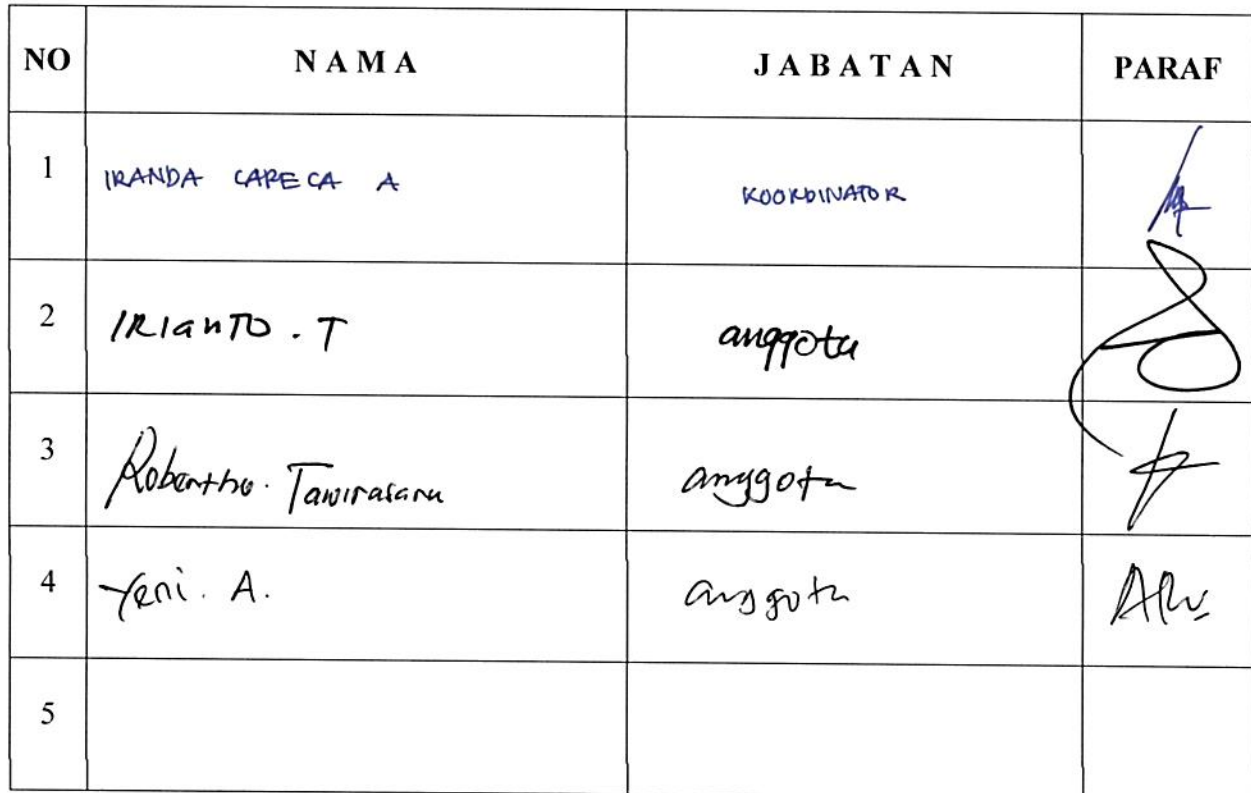 NO NAMA JABATAN PARAF
1 IRANDA CARECA A KOORDINATOR
2 IRIANTO . T anggota
3 anggota
4 Yeni. A. anggota
5